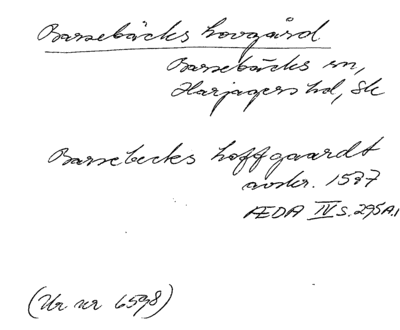 Barsebäcks hovgård
Barsebäcks sn,
Harjagers hd, Sk
Barsebecks hoffgaardt
avskr. 1537
ÆDA IV s. 295 A.1
(Ur nr 6598)